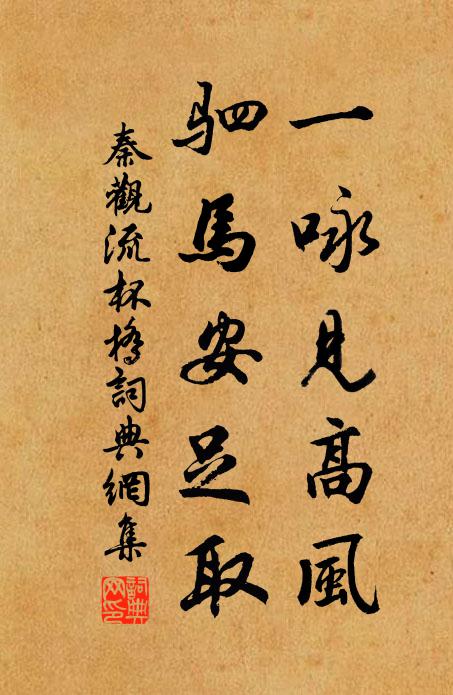 一咏見高風
駟馬安足取
秦觀流杯橋詞典網集
詞典
网印